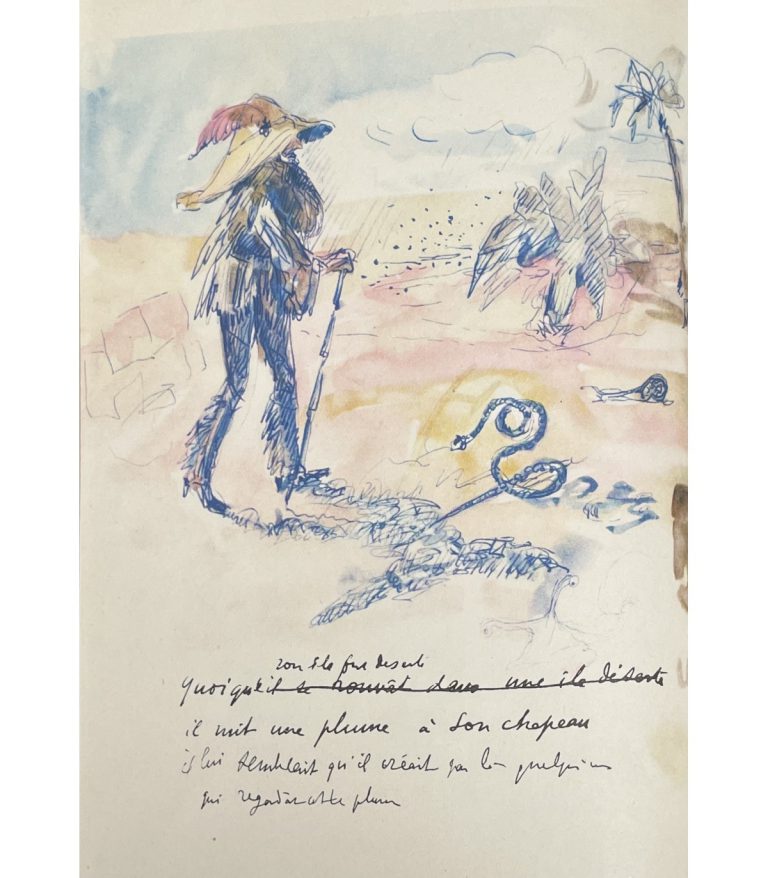 son île fut déserte
Quoiqu'il se trouvât dans une île déserte
il mit une plume à son chapeau
il lui semblait qu'il créait par là quelqu'un
qui regardât cette plume